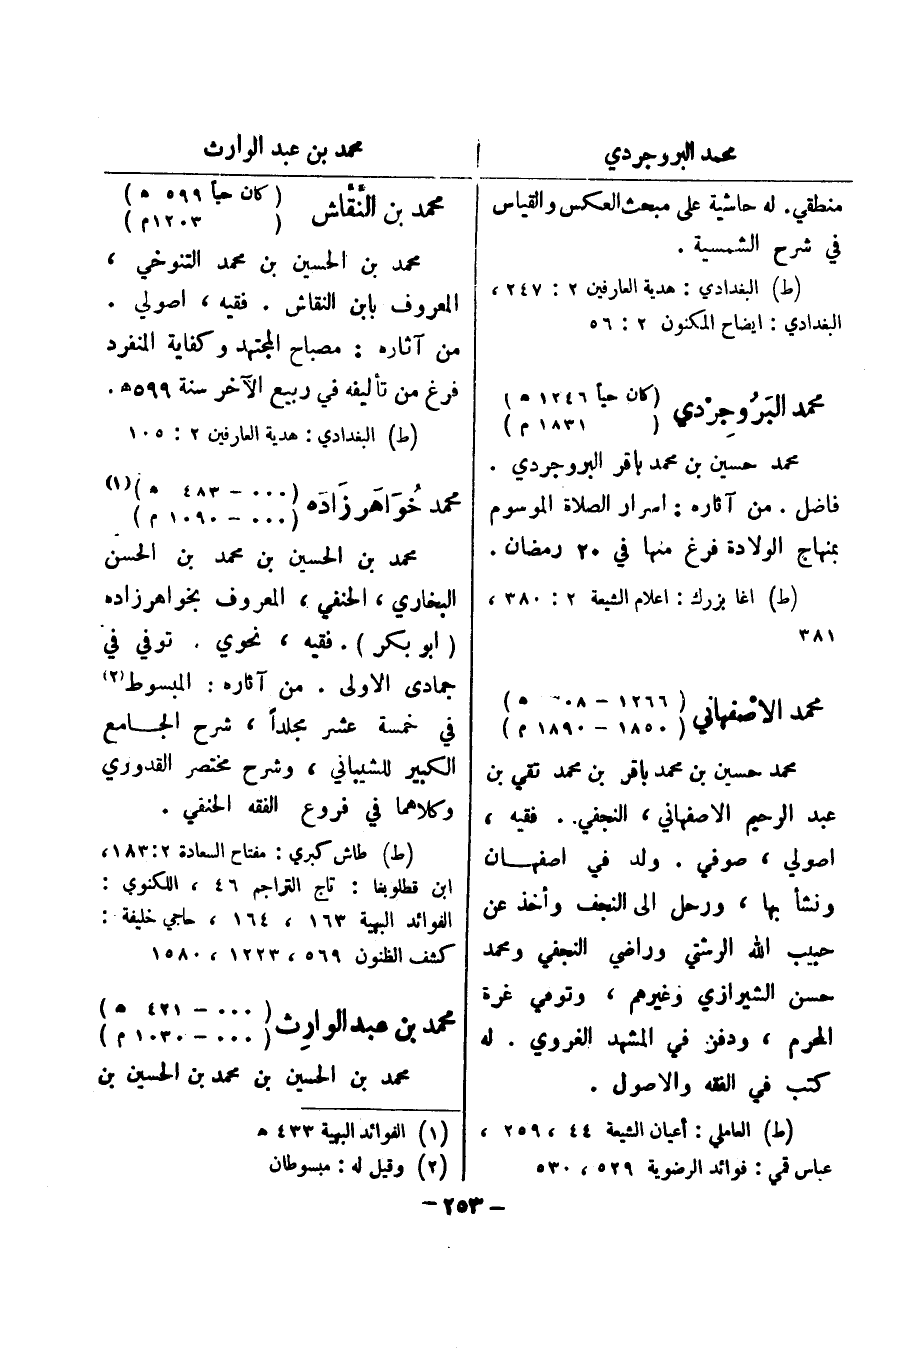 محمد البروجردي
محمد بن عبد الوارث
منطقي . له حاشية على مبحث العكس والقياس
في شرح الشمسية .
(ط) البغدادي : هدية العارفين ٢ : ٢٤٧ ،
البغدادي : ايضاح المكنون ٢ : ٥٦
محمد البَرُوجِرْدي
(كان حياً ١٢٤٦ ه )
( ١٨٣١ م )
محمد حسين بن محمد باقر البروجردي .
فاضل . من آثاره : اسرار الصلاة الموسوم
بمنهاج الولادة فرغ منها في ٢٠ رمضان .
(ط) اغا بزرك : اعلام الشيعة ٢ : ٣٨٠ ،
٣٨١
محمد الاصْفهاني
( ١٢٦٦ – ٠٨ ه )
( ١٨٥٠ – ١٨٩٠ م )
محمد حسين بن محمد باقر بن محمد تقي بن
عبد الرحيم الاصفهاني ، النجفي . فقيه ،
اصولي ، صوفي . ولد في اصفهـان
ونشأ بها ، ورحل الى النجف وأخذ عن
حبيب الله الرشتي وراضي النجفي ومحمد
حسن الشيرازي وغيرهم ، وتوفي غرة
المحرم ، ودفن في المشهد الغروي . له
كتب في الفقه والاصول .
(ط) العاملي : أعيان الشيعة ٤٤ ، ٢٥٩ ،
عباس قمي : فوائد الرضوية ٥٢٩ ، ٥٣٠
محمد بن النَّقَّاش
( كان حياً ٥٩٩ ه )
( ١٢٠٣م )
محمد بن الحسين بن محمد التنوخي ،
المعروف بابن النقاش . فقيه ، اصولي .
من آثاره : مصباح المجتهد وكفاية المنفرد
فرغ من تأليفه في ربيع الآخر سنة ٥٩٩ه .
(ط) البغدادي : هدية العارفين ٢ : ١٠٥
محمد خُوَاهَرزَادَه
(٠٠٠ – ٤٨٣ ه )(١)
(٠٠٠ – ١٠٩٠ م )
محمد بن الحسين بن محمد بن الحسن
البخاري ، الحنفي ، المعروف بخواهرزاده
( ابو بكر ) . فقيه ، نحوي . توفي في
جمادى الاولى . من آثاره : المبسوط(٢)
في خمسة عشر مجلداً ، شرح الجـامع
الكبير للشيباني ، وشرح مختصر القدوري
وكلاهما في فروع الفقه الحنفي .
(ط) طاش كبري : مفتاح السعادة ٢ : ١٨٣ ،
ابن قطلوبغا : تاج التراجم ٤٦ ، اللكنوي :
الفوائد البهية ١٦٣ ، ١٦٤ ، حاجي خليفة :
كشف الظنون ٥٦٩ ، ١٢٢٣ ، ١٥٨٠
محمد بن عبد الوارِث
( ٠٠٠ – ٤٢١ ه )
( ٠٠٠ – ١٠٣٠ م )
محمد بن الحسين بن محمد بن الحسين بن
(١) الفوائد البهية ٤٣٣ ه
(٢) وقيل له : مبسوطان
– ٢٥٣ –